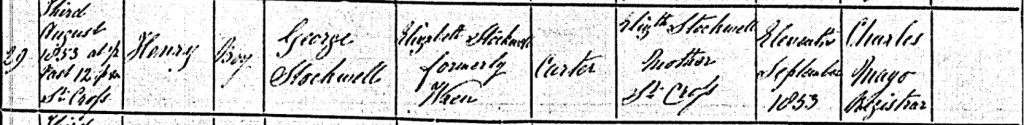 29
Third
August
1853 at ½
past 12 pm
St Cross
Henry
Boy
George
Stockwell
Elizabeth Stockwell
formerly
Carter
Elizth Stockwell
Mother
St Cross
Eleventh
September
1853
Charles
Mayo
Registrar